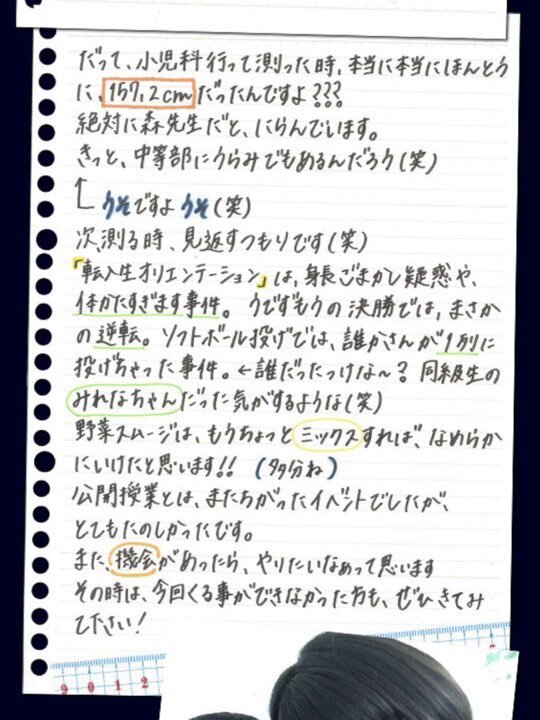 だって、小児科行って測った時、本当に本当にほんとう
に、157.2cmだったんですよ???
絶対に森先生だと、にらんでいます。
きっと、中等部にうらみでもあるんだろう(笑)
うそですよ うそ(笑)
次、測る時、見返すつもりです(笑)
「転入生オリエンテーション」は、身長ごまかし疑惑や、
体かたすぎます事件。うでずもうの決勝では、まさか
の逆転。ソフトボール投げでは、誰かさんが1列に
投げちゃった事件。←誰だったっけな〜?同級生の
みれなちゃんだった気がするような(笑)
野菜スムージは、もうちょっとミックスすれば、なめらか
にいけたと思います!!(多分ね)
公開授業とは、またちがったイベントでしたが、
とてもたのしかったです。
また、機会があったら、やりたいなぁって思います
その時は、今回くる事ができなかった方も、ぜひきてみ
て下さい!
9 0 1 2